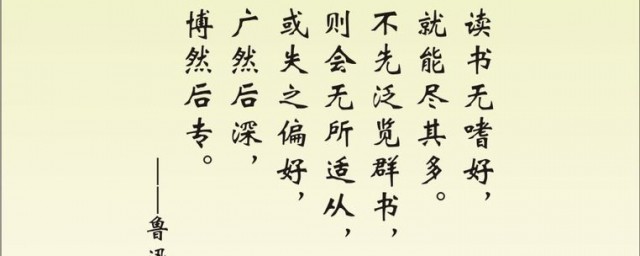 读书无嗜好，
就能尽其多。
不先泛览群书，
则会无所适从，
或失之偏好，
广然后深，
博然后专。
——鲁迅